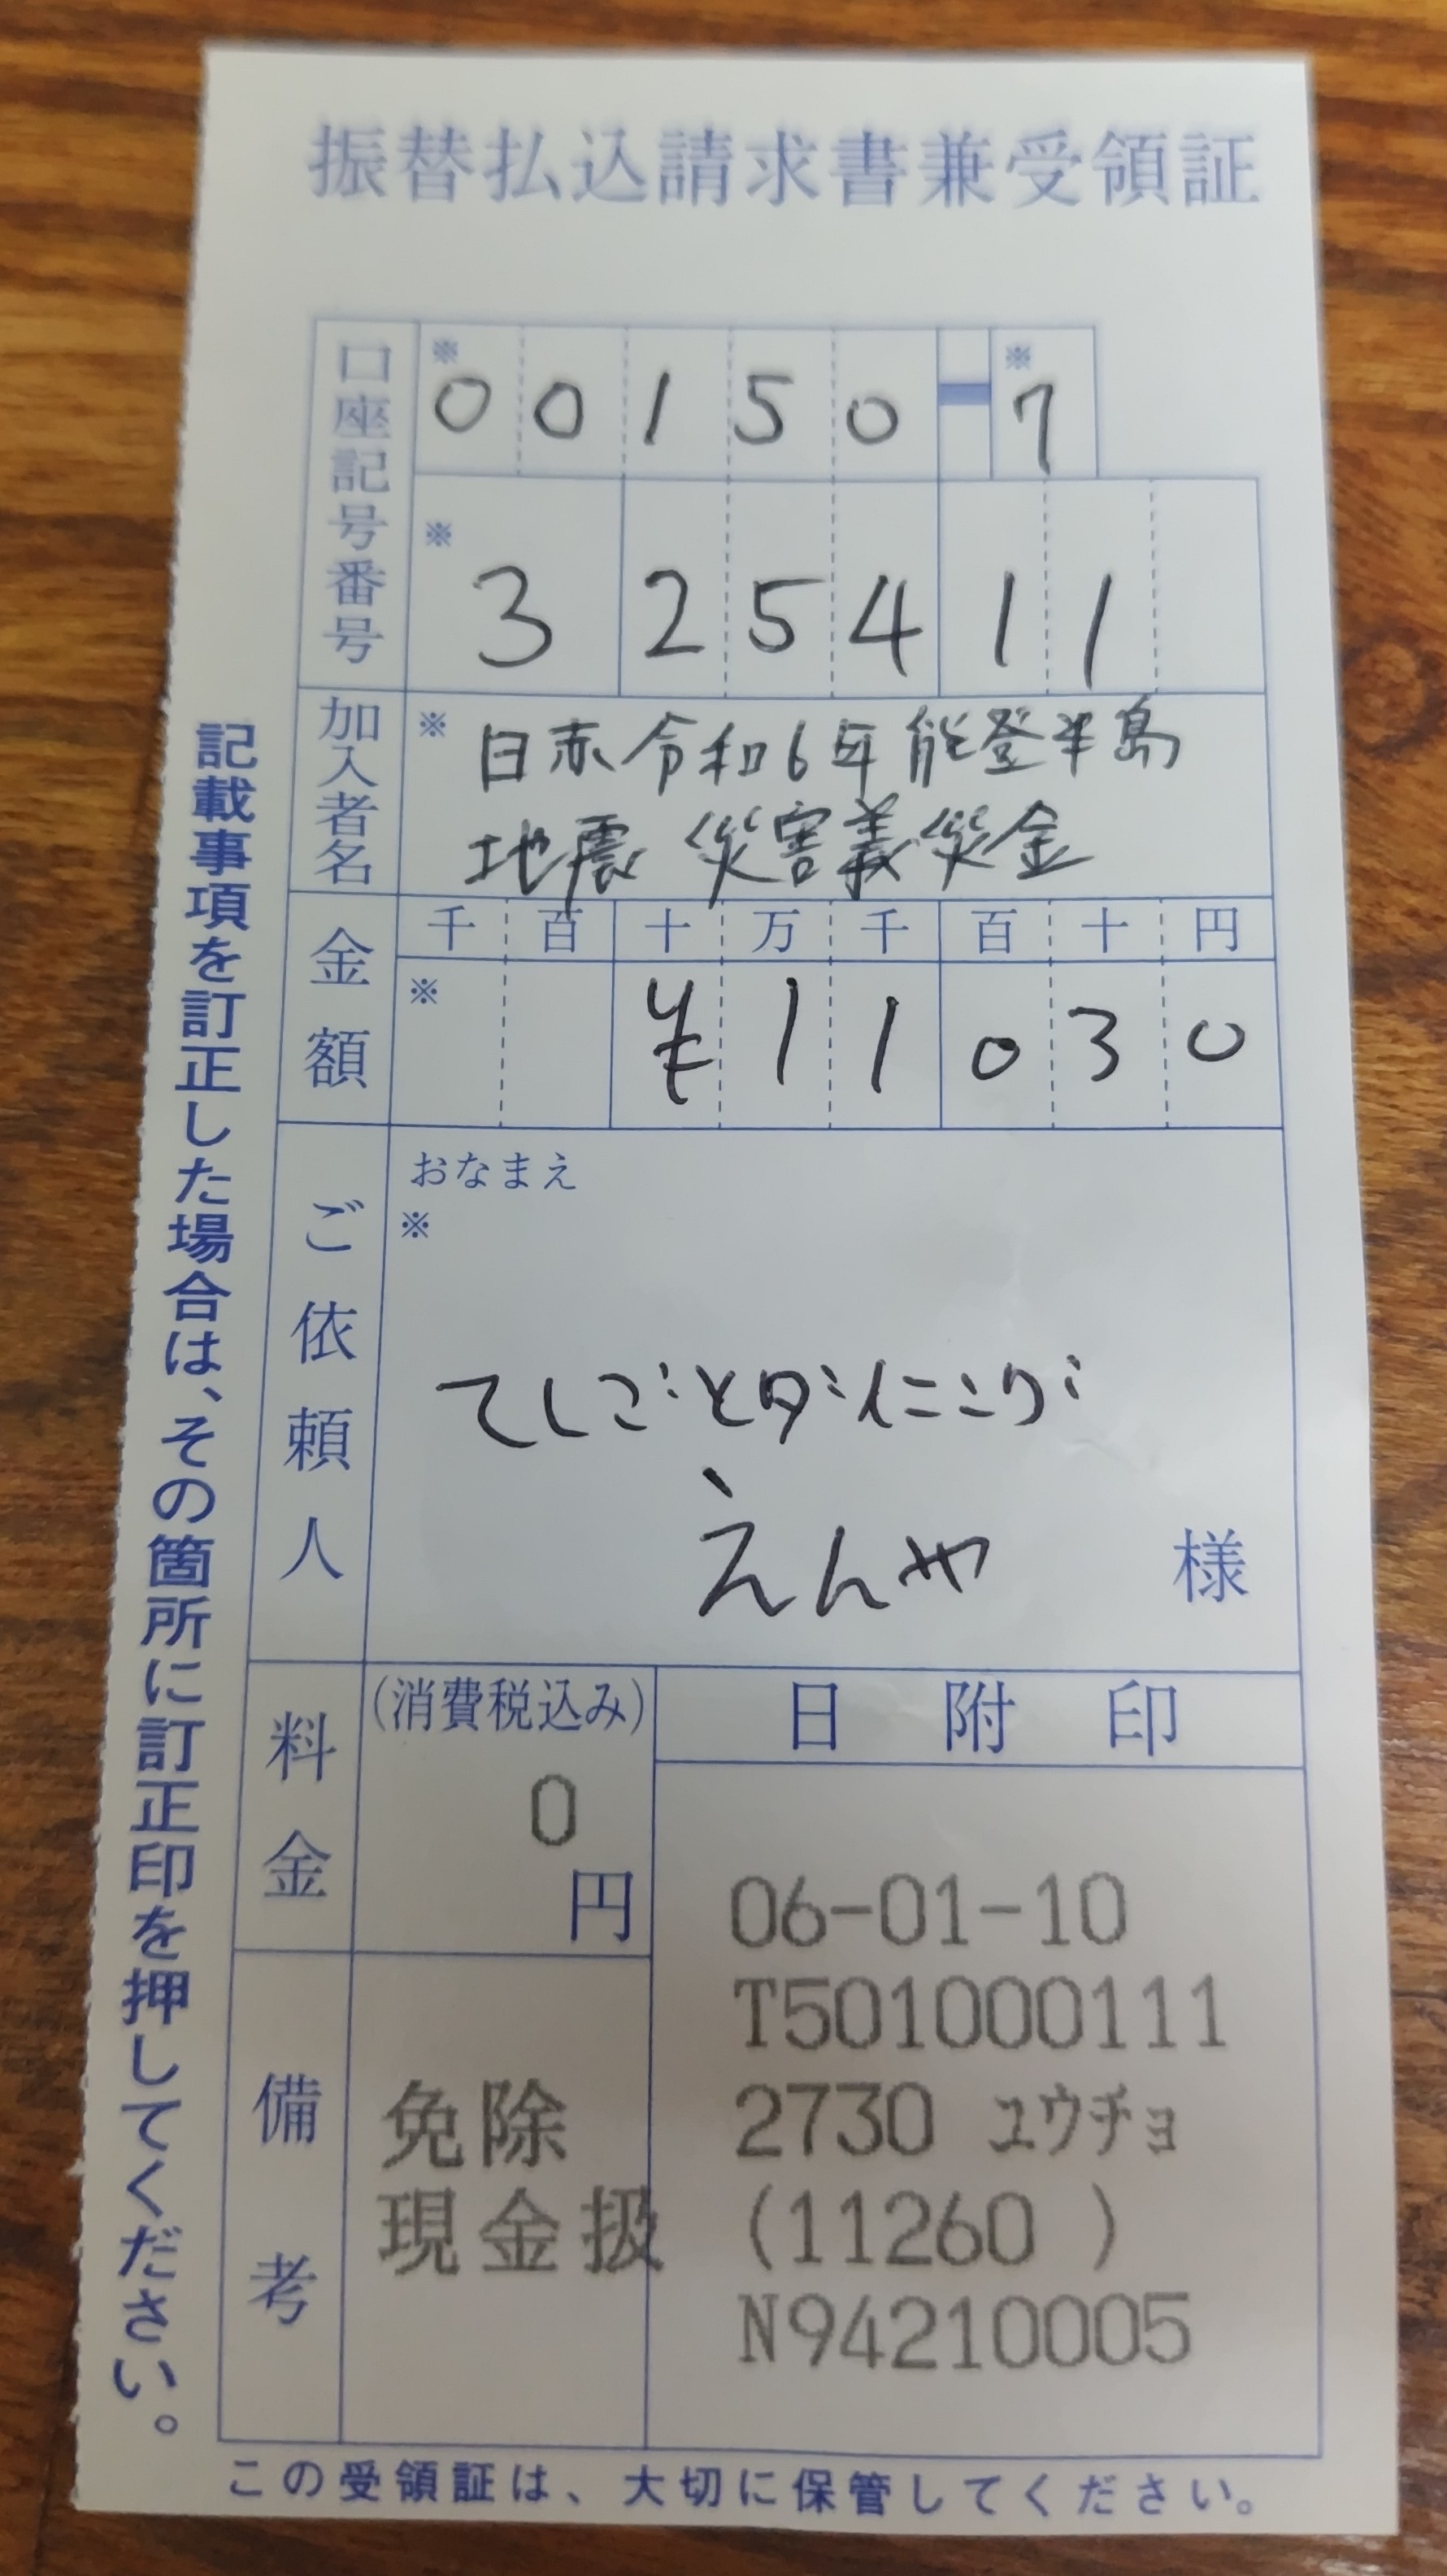 振替払込請求書兼受領証
口座記号番号
※ ※
00150-7
※
325411
加入者名
※ 日赤令和6年能登半島
地震災害義災金
金額
千百十万千百十円
※
¥11030
ご依頼人
おなまえ
※
えんや 様
料金
(消費税込み)
0
円
日附印
06-01-10
T501000111
2730 ユウチョ
(11260 )
N94210005
備考
免除
現金扱
記載事項を訂正した場合は、その箇所に訂正印を押してください。
この受領証は、大切に保管してください。